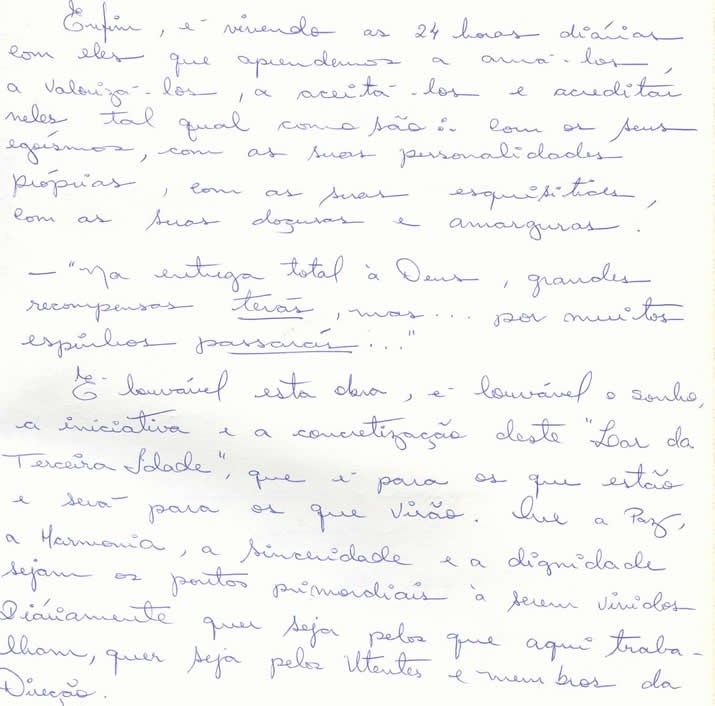 Enfim, é vivendo as 24 horas diárias
com eles que aprendemos a amá-los,
a valorizá-los, a aceitá-los e acreditar
neles tal qual como são: com os seus
egoísmos, com as suas personalidades
próprias, com as suas esquisitices,
com as suas doçuras e amarguras.
— "Na entrega total à Deus, grandes
recompensas terás, mas... por muitos
espinhos passarás..."
É louvável esta obra, é louvável o sonho,
a iniciativa e a concretização deste "Lar da
Terceira Idade", que é para os que estão
e será para os que virão. Que a Paz,
a Harmonia, a sinceridade e a dignidade
sejam os pontos primordiais à serem vividos
Diáriamente quer seja pelos que aqui traba-
lham, quer seja pelos Utentes e membros da
Direcção.